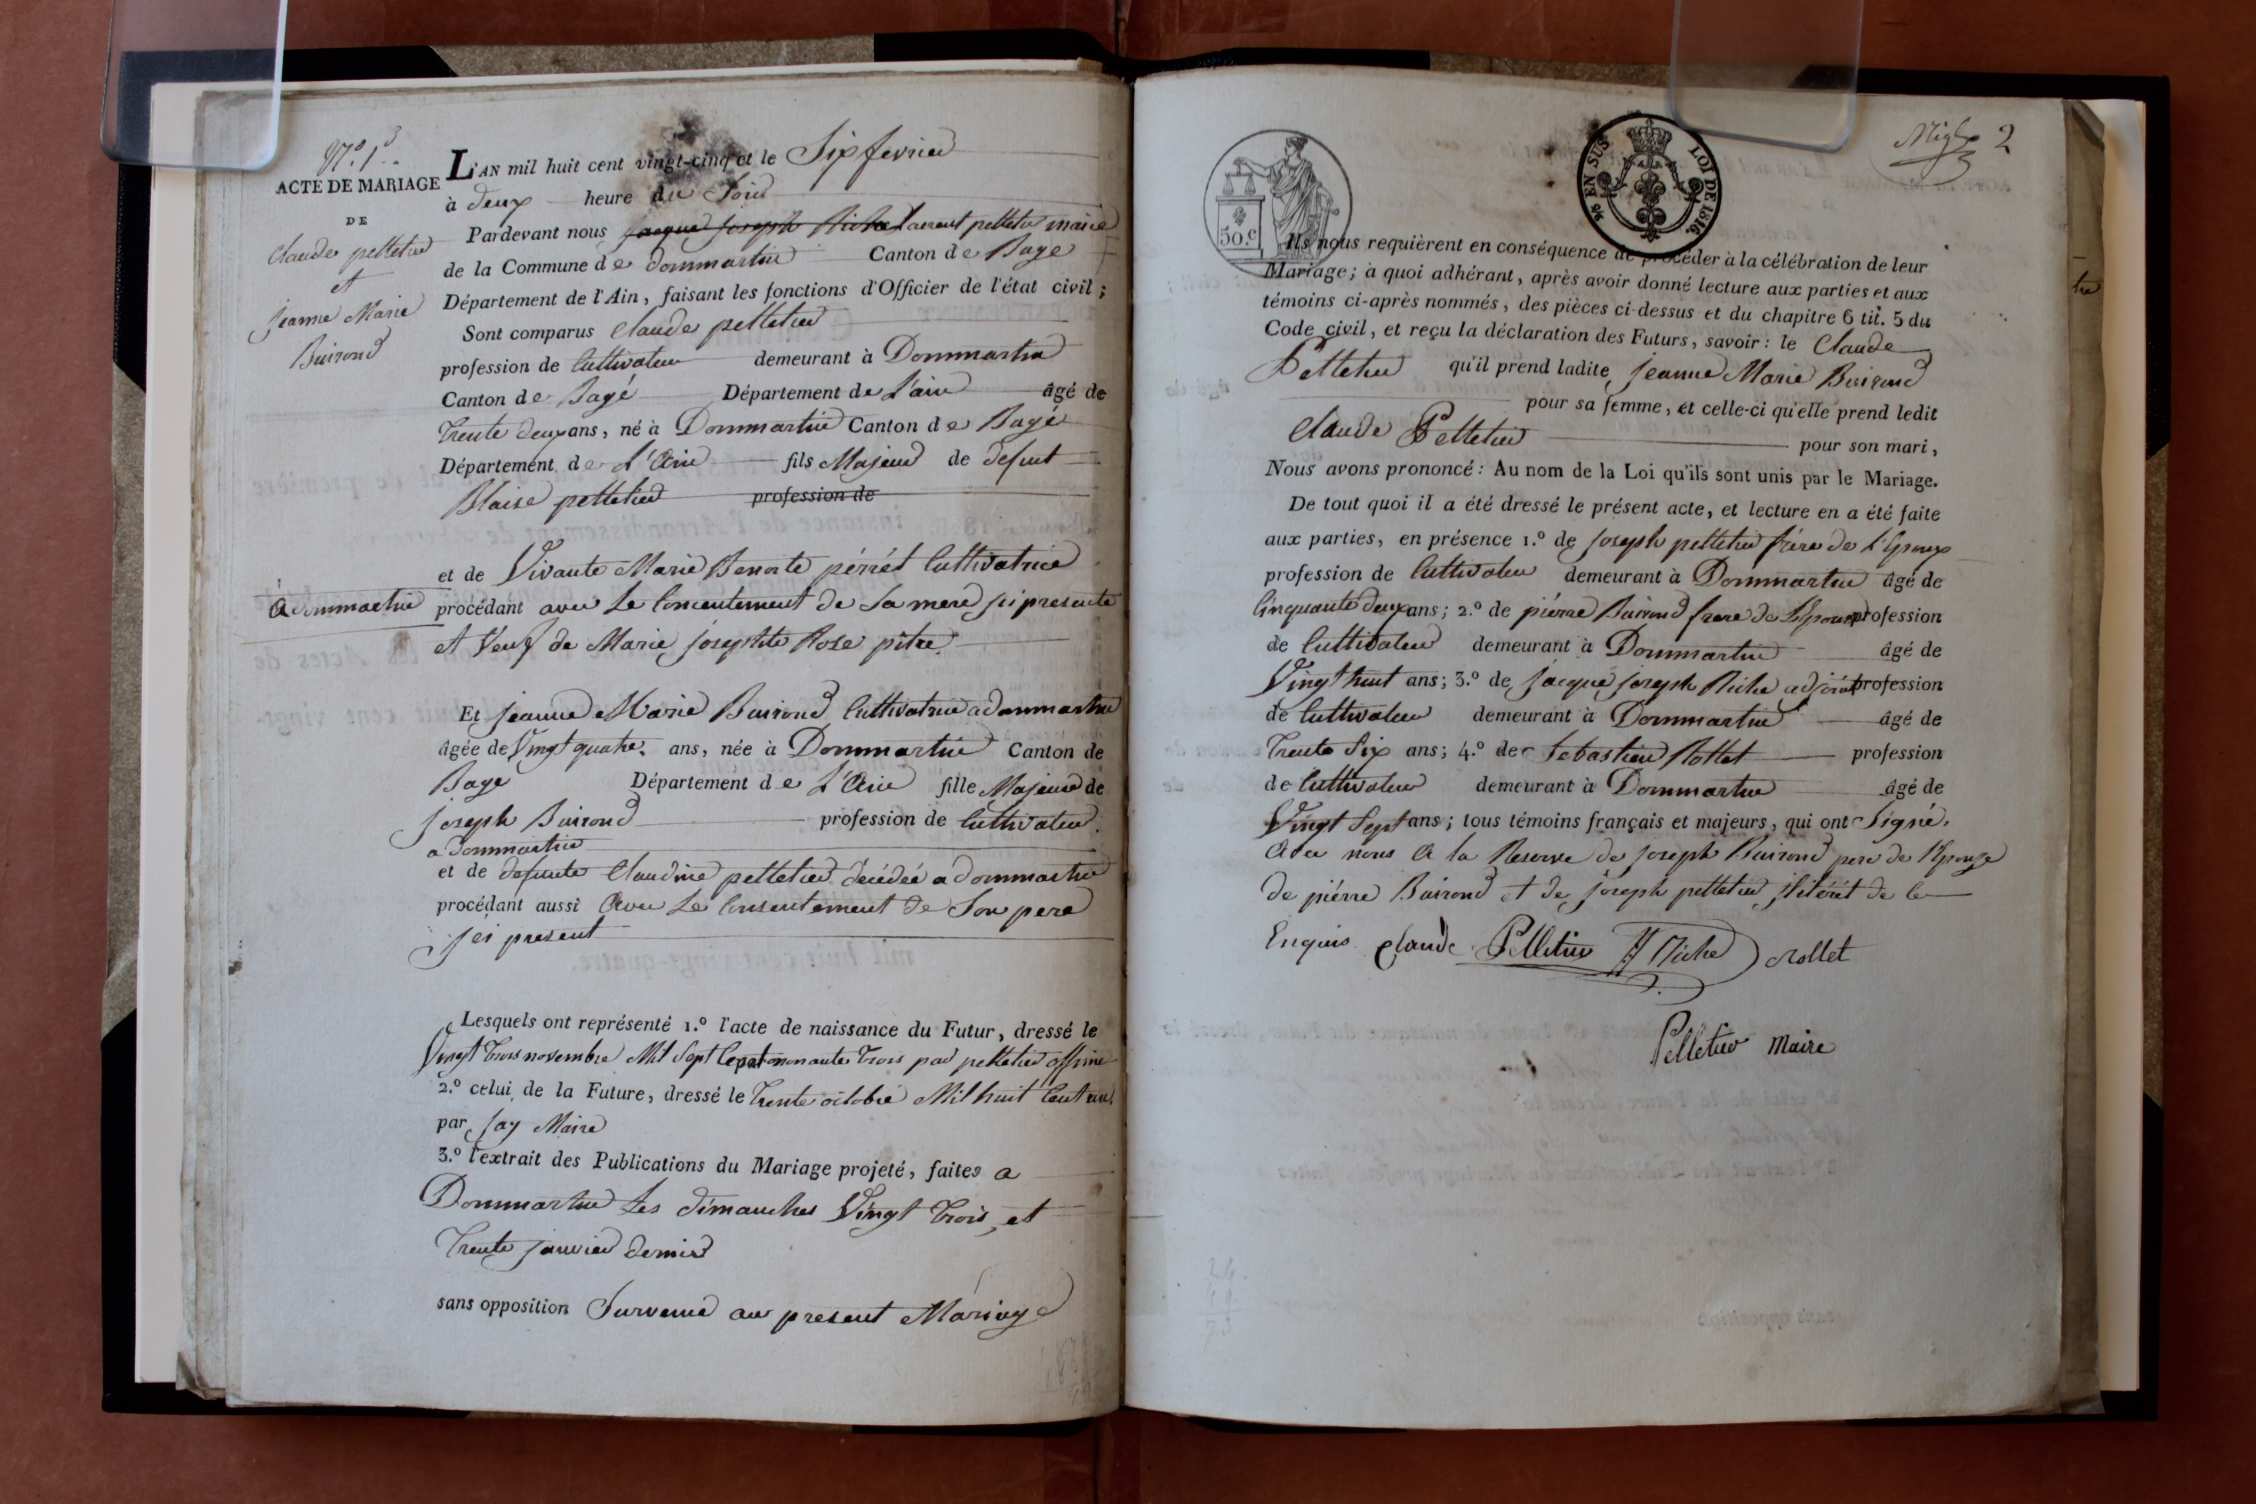 N.º 1.er
ACTE DE MARIAGE
DE
Claude pelletier
et
jeanne Marie
Buirond
L'AN mil huit cent vingt-cinq et le Six fevrier
à deux heure du Soir
Pardevant nous jacque joseph Riche Laurent pelletier maire
de la Commune de dommartin Canton de Bage
Département de l'Ain, faisant les fonctions d'Officier de l'état civil ;
Sont comparus Claude pelletier
profession de Cultivateur demeurant à Dommartin
Canton de Bagé Département de L'ain âgé de
Trente deux ans, né à Dommartin Canton de Bagé
Département de L'Ain fils Majeur de defunt
Blaise pelletier profession de
et de Vivante Marie Benoite pérrét Cultivatrice
à dommartin
procédant avec Le Concentement de Sa mere ici presente
et Veuf de Marie josephte Rose pitre
Et jeanne Marie Buirond Cultivatrice a dommartin
âgée de Vingt quatre ans, née à Dommartin Canton de
Bage Département de L'Ain fille Majeure de
joseph Buirond profession de Cultivateur
a dommartin
et de defunte Claudine pelletier décédée a dommartin
procédant aussi Avec Le Consentement de Son pere
ici present
Lesquels ont représenté 1.º l'acte de naissance du Futur, dressé le
Vingt trois novembre Mil Sept Cent nonante trois par pelletier officier
2.º celui de la Future, dressé le Trente octobre Mil huit Cent un
par Jay Maire
3.º l'extrait des Publications du Mariage projeté, faites a
Dommartin Les dimanches Vingt trois et
Trente janvier dernier
sans opposition Survenue au present Mariage
2
50.c
95 EN SUS
LOI DE 1816.
Ils nous requièrent en conséquence de procéder à la célébration de leur
Mariage ; à quoi adhérant, après avoir donné lecture aux parties et aux
témoins ci-après nommés, des pièces ci-dessus et du chapitre 6 tit. 5 du
Code civil, et reçu la déclaration des Futurs, savoir : le Claude
Pelletier qu'il prend ladite jeanne Marie Buirond
pour sa femme, et celle-ci qu'elle prend ledit
Claude Pelletier pour son mari,
Nous avons prononcé : Au nom de la Loi qu'ils sont unis par le Mariage.
De tout quoi il a été dressé le présent acte, et lecture en a été faite
aux parties, en présence 1.º de joseph pelletier frère de l'Epoux
profession de Cultivateur demeurant à Dommartin âgé de
Cinquante deux ans ; 2.º de piérre Buirond frere de L'Epouse profession
de Cultivateur demeurant à Dommartin âgé de
Vingt huit ans ; 3.º de jacque joseph Riche adjoint profession
de Cultivateur demeurant à Dommartin âgé de
Trente Six ans ; 4.º de Sebastien Rollet profession
de Cultivateur demeurant à Dommartin âgé de
Vingt Sept ans ; tous témoins français et majeurs, qui ont Signé.
Avec nous A la Reserve de joseph Buirond pere de l'Epouze
de piérre Buirond et de joseph pelletier jlitérét de ce
Enquis Claude Pelletier JJ Riche Rollet
Pelletier Maire